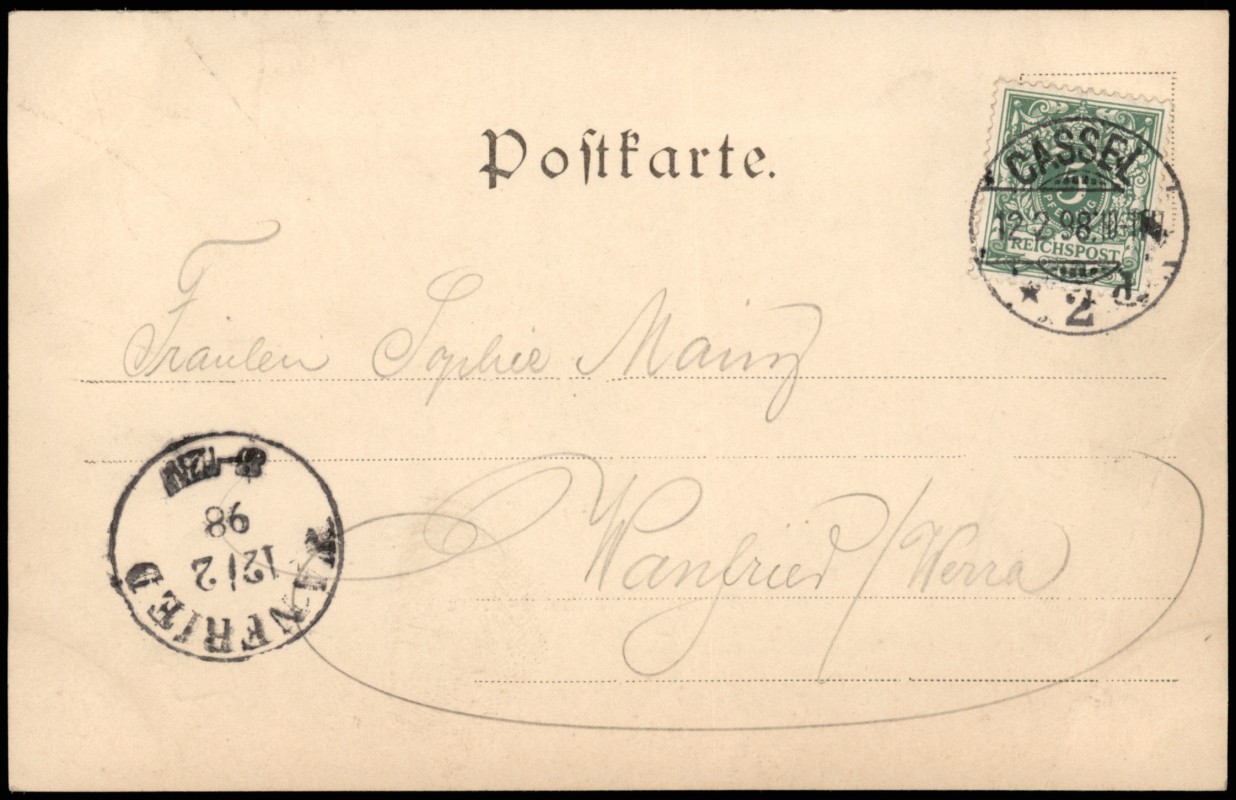 Postkarte.
CASSEL
5
PFENNIG
12.2.98
REICHSPOST
* 2
Fräulein Sophie Mainz
98
12/2
WANFRIED
Wanfried / Werra